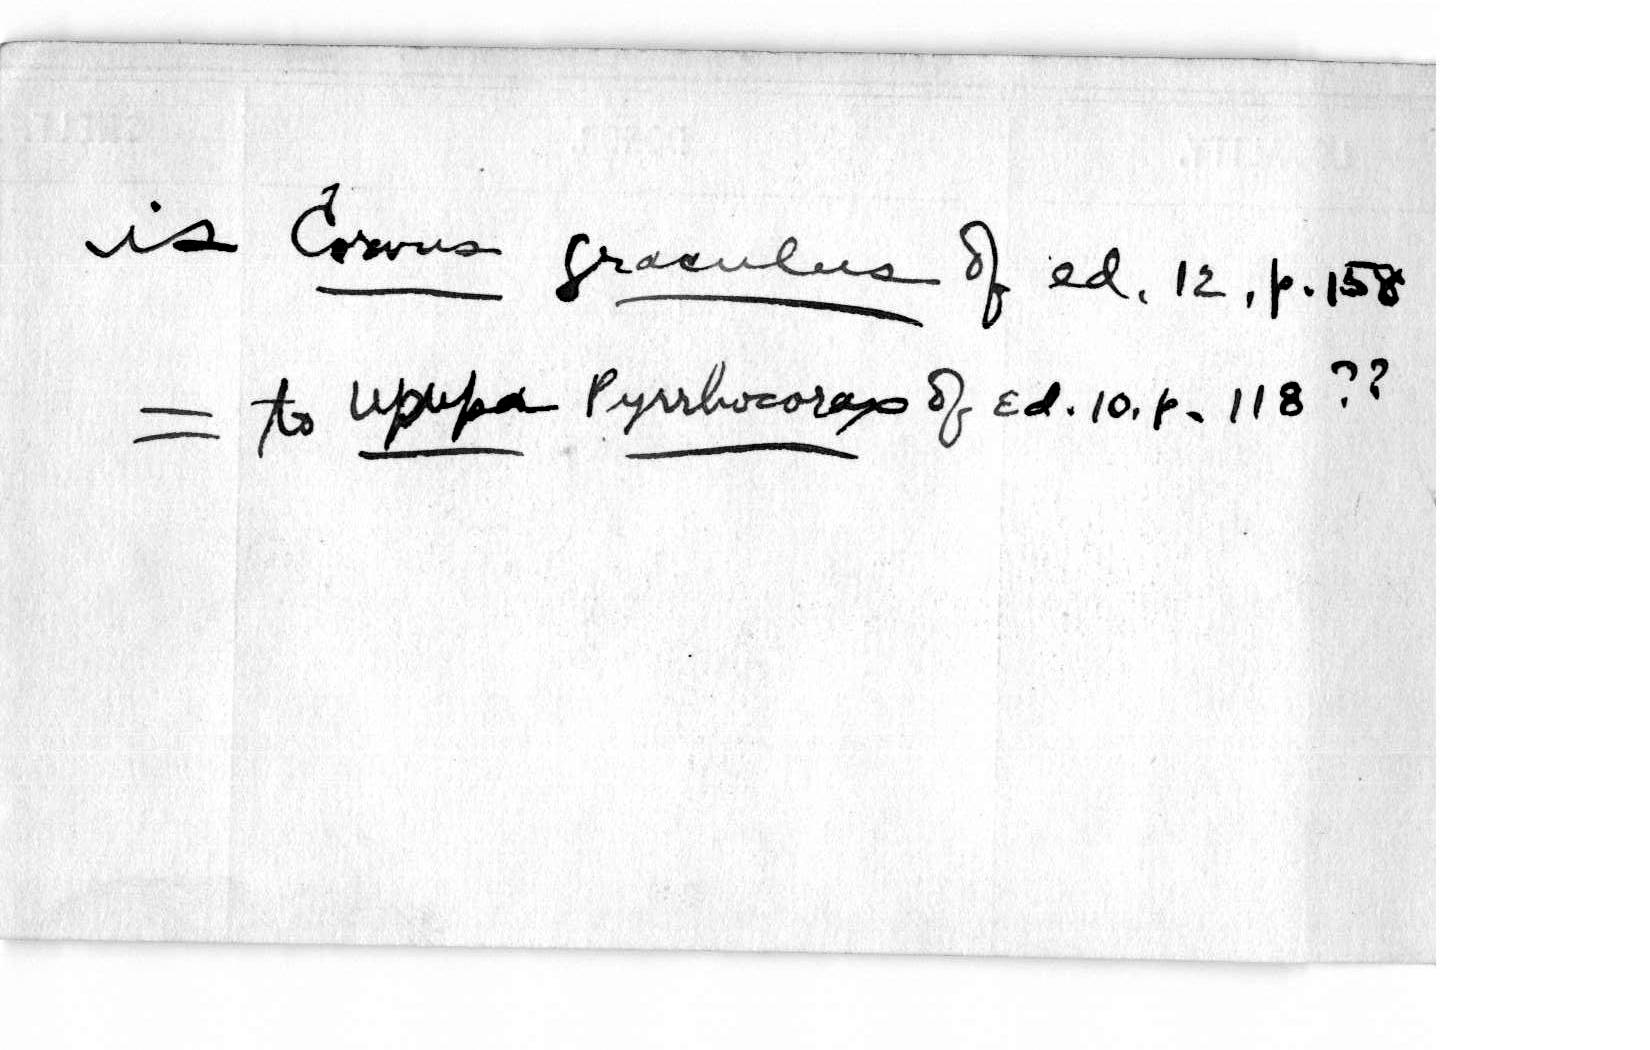 is Corvus graculus of ed. 12, p. 158
= to Upupa Pyrrhocorax of Ed. 10. p. 118 ??